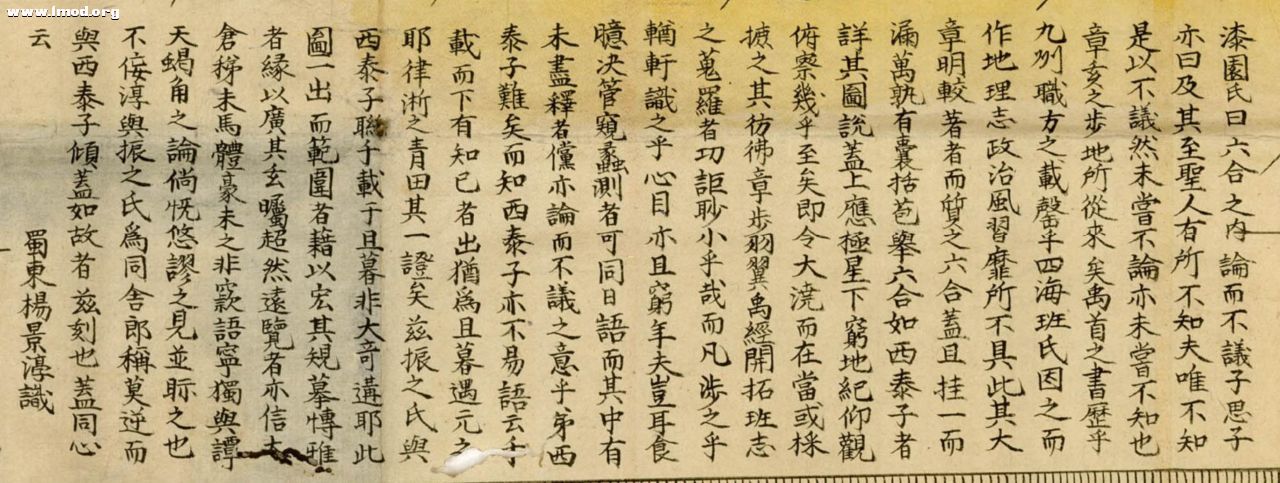 www.lmod.org
漆園氏曰六合之內論而不議子思子
亦曰及其至聖人有所不知夫唯不知
是以不議然未嘗不論亦未嘗不知也
章亥之步地所從來矣禹首之書歷乎
九州職方之載罄乎四海班氏因之而
作地理志政治風習靡所不具此其大
章明較著者而質之六合蓋且挂一而
漏萬孰有囊括苞舉六合如西泰子者
詳其圖說蓋上應極星下窮地紀仰觀
俯察幾乎至矣即令大滰而在當或採
摭之其彷彿章步羽翼禹經開拓班志
之蒐羅者功詎眇小乎哉而凡涉之乎
輶軒識之乎心目亦且窮年夫豈耳食
臆决管窺蠡測者可同日語而其中有
未盡釋者儻亦論而不議之意乎弟西
泰子難矣而知西泰子亦不易語云千
載而下有知已者出猶為旦暮遇元之
耶律淅之青田其一證矣茲振之氏與
西泰子聯千載于旦暮非大奇遘耶此
圖一出而範圍者藉以宏其規摹博雅
者緣以廣其玄矚超然遠覽者亦信太
倉稊未馬體豪末之非窾語寧獨與譚
天蝎角之論倘怳悠謬之見並眎之也
不佞淳與振之氏為同舍郎稱莫逆而
與西泰子傾蓋如故者茲刻也蓋同心
云
蜀東楊景淳識